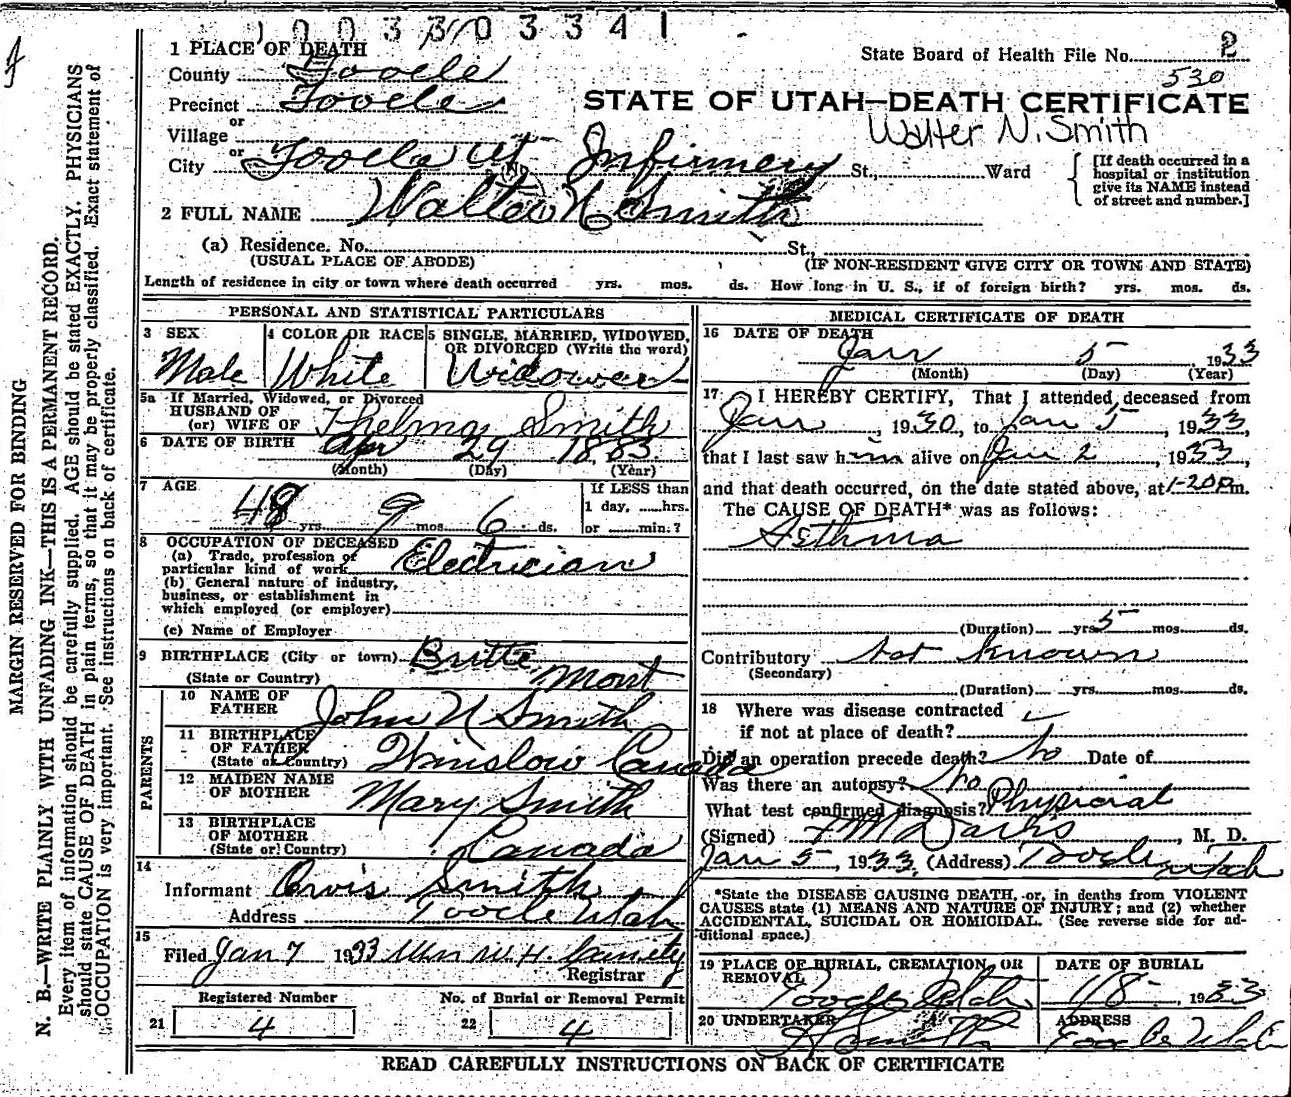 1003303341
1 PLACE OF DEATH
State Board of Health File No. 2
530
County Tooele
Precinct Tooele
STATE OF UTAH—DEATH CERTIFICATE
Walter N. Smith
or
Village
or
City Tooele Ut Infirmery St., Ward
[If death occurred in a hospital or institution give its NAME instead of street and number.]
2 FULL NAME Walter N Smith
(a) Residence. No. St.,
(USUAL PLACE OF ABODE) (IF NON-RESIDENT GIVE CITY OR TOWN AND STATE)
Length of residence in city or town where death occurred yrs. mos. ds. How long in U. S., if of foreign birth? yrs. mos. ds.
PERSONAL AND STATISTICAL PARTICULARS
3 SEX
Male
4 COLOR OR RACE
White
5 SINGLE, MARRIED, WIDOWED,
OR DIVORCED (Write the word)
Widower
5a If Married, Widowed, or Divorced
HUSBAND OF
(or) WIFE OF Thelma Smith
6 DATE OF BIRTH Apr 29 1883
(Month) (Day) (Year)
7 AGE
48 yrs 9 mos. 6 ds.
If LESS than
1 day, hrs.
or min.?
8 OCCUPATION OF DECEASED
(a) Trade, profession or
particular kind of work Electrician
(b) General nature of industry,
business, or establishment in
which employed (or employer)
(c) Name of Employer
9 BIRTHPLACE (City or town) Butte
(State or Country) Mont
PARENTS
10 NAME OF
FATHER John N Smith
11 BIRTHPLACE
OF FATHER
(State or Country) Winslow Canada
12 MAIDEN NAME
OF MOTHER Mary Smith
13 BIRTHPLACE
OF MOTHER
(State or Country) Canada
14
Informant Orvis Smith
Address Tooele Utah
15
Filed Jan 7 1933 W. H.
Registrar
Registered Number
21 4
No. of Burial or Removal Permit
22 4
MEDICAL CERTIFICATE OF DEATH
16 DATE OF DEATH
Jan 5 1933
(Month) (Day) (Year)
17 I HEREBY CERTIFY, That I attended deceased from
Jan, 1930, to Jan 5, 1933,
that I last saw him alive on Jan 2, 1933,
and that death occurred, on the date stated above, at 1-20 Pm.
The CAUSE OF DEATH* was as follows:
Asthma
(Duration) yrs 5 mos. ds.
Contributory not known
(Secondary)
(Duration) yrs. mos. ds.
18 Where was disease contracted
if not at place of death?
Did an operation precede death? No Date of
Was there an autopsy? No
What test confirmed diagnosis? Physical
(Signed) M. D.
Jan 5, 1933, (Address) Tooele Utah
*State the DISEASE CAUSING DEATH, or, in deaths from VIOLENT
CAUSES state (1) MEANS AND NATURE OF INJURY; and (2) whether
ACCIDENTAL, SUICIDAL OR HOMICIDAL. (See reverse side for ad-
ditional space.)
19 PLACE OF BURIAL, CREMATION, OR
REMOVAL
Tooele Utah
DATE OF BURIAL
1/8, 1933
20 UNDERTAKER
Smith
ADDRESS
Tooele Utah
READ CAREFULLY INSTRUCTIONS ON BACK OF CERTIFICATE
MARGIN RESERVED FOR BINDING
N. B.—WRITE PLAINLY WITH UNFADING INK—THIS IS A PERMANENT RECORD.
Every item of information should be carefully supplied. AGE should be stated EXACTLY. PHYSICIANS
should state CAUSE OF DEATH in plain terms, so that it may be properly classified. Exact statement of
OCCUPATION is very important. See instructions on back of certificate.